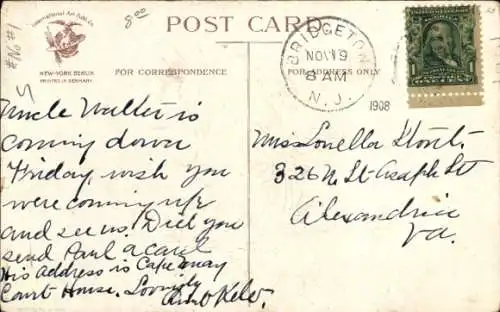 # No #1
8.00
International Art Pub. Co.
NEW-YORK BERLIN
PRINTED IN GERMANY
POST CARD
FOR CORRESPONDENCE
FOR ADDRESS ONLY
BRIDGETON
NOV 19
8 AM
N. J.
1908
1
Uncle Walter is
coming down
Friday, wish you
were coming up
and see us. Did you
send Paul a card
His address is Cape May
Court House. Lovingly
Aunt
Miss Louella
326 N. St-Asaph St
Alexandria
Va.